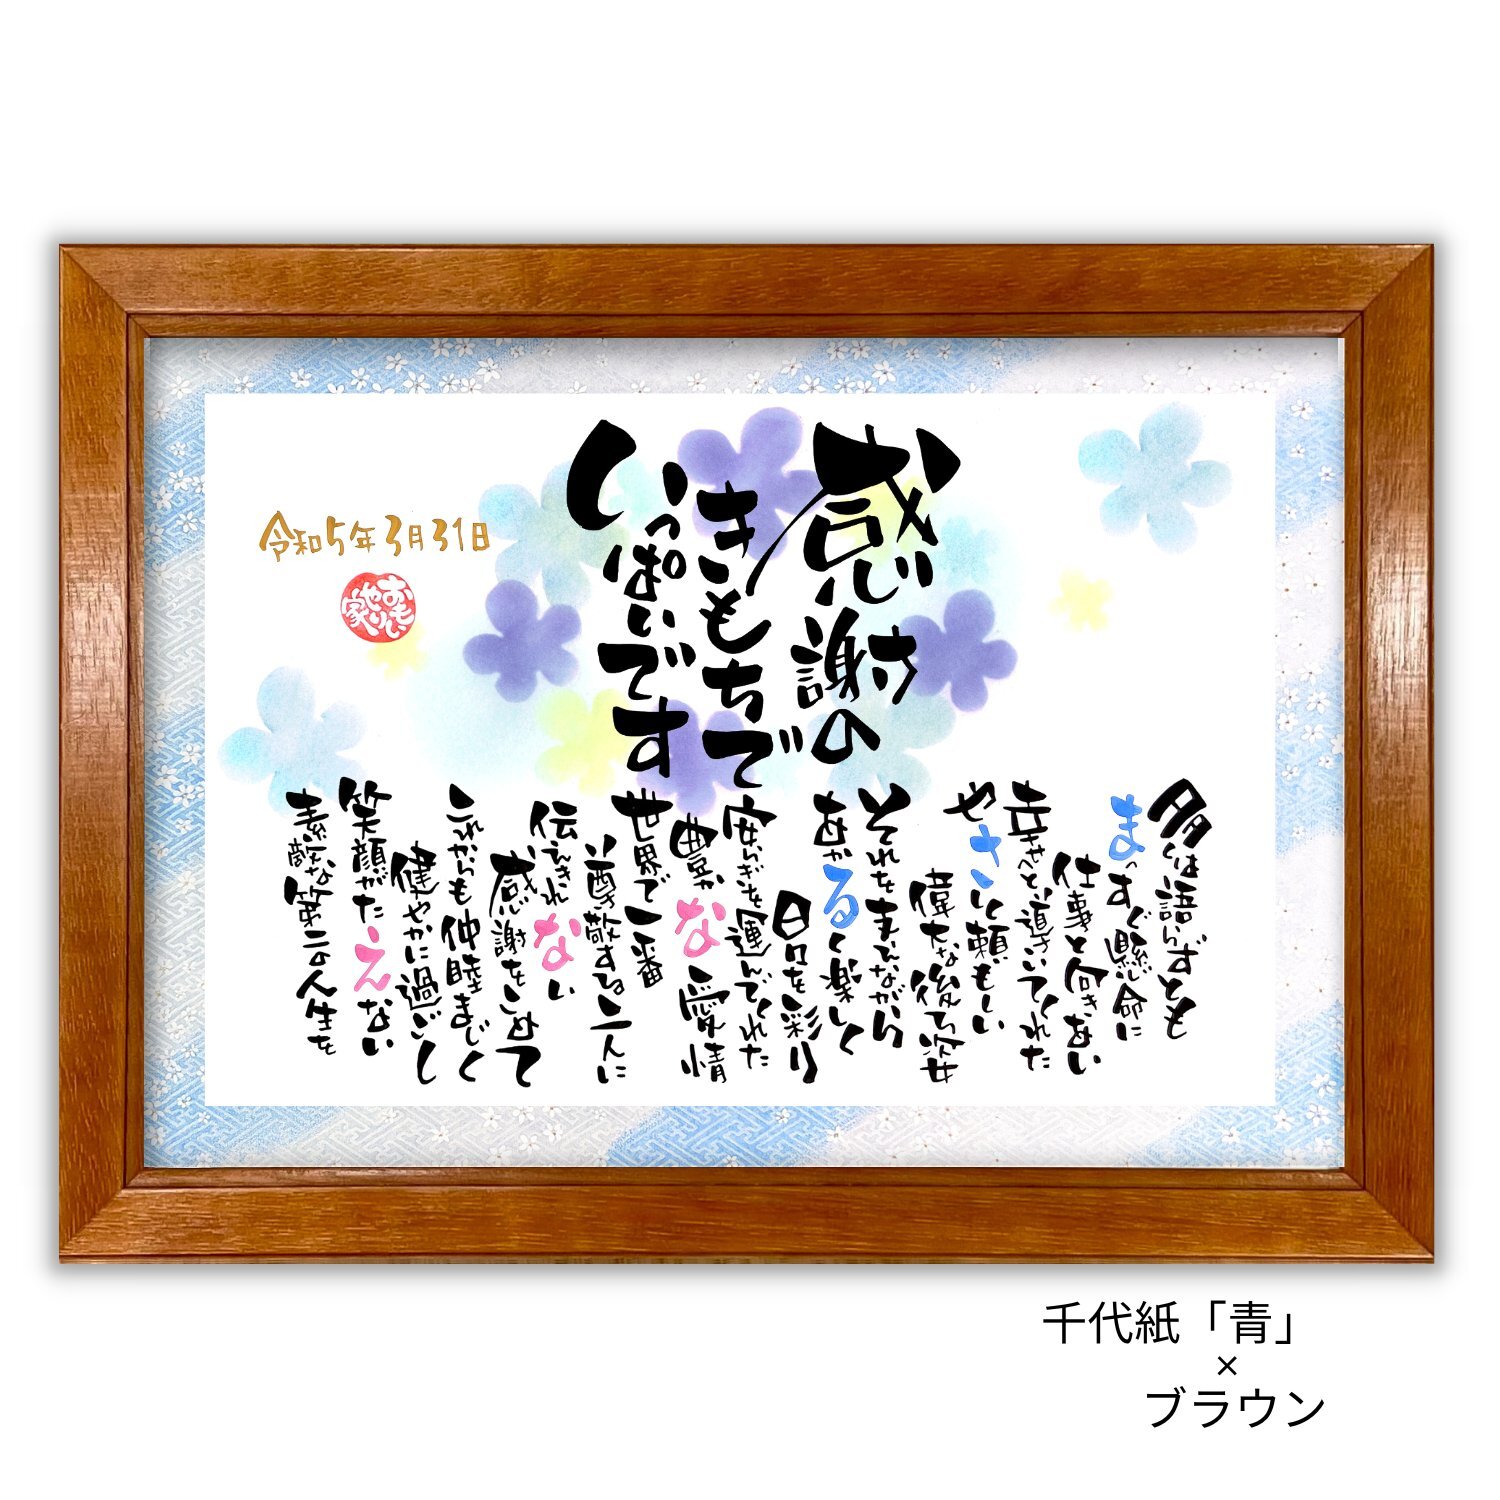 感謝の
きもちで
いっぱいです
令和5年3月31日
おもいやり家
多くは語らずとも
まっすぐ懸命に
仕事と向きあい
幸せへと導いてくれた
やさしく頼もしい
偉大な後ろ姿
それをまでながら
あかるく楽しく
日々を彩り
安らぎを運んでくれた
豊かな愛情
世界で一番
尊敬する二人に
伝えきれない
感謝をこめて
これからも仲睦まじく
健やかに過ごし
笑顔がたえない
素敵な第二の人生を
千代紙「青」
×
ブラウン